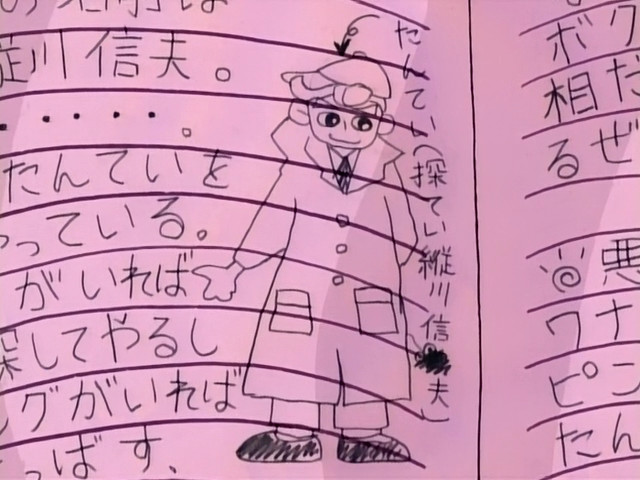 の名前は
縦川 信夫。
・・・・・。
たんていを
っている。
がいれば
探してやるし
グがいれば
っばす、
たんてい(探てい縦川信夫)
ボク
相だ
るぜ
悪
ワナ
ピン
たん